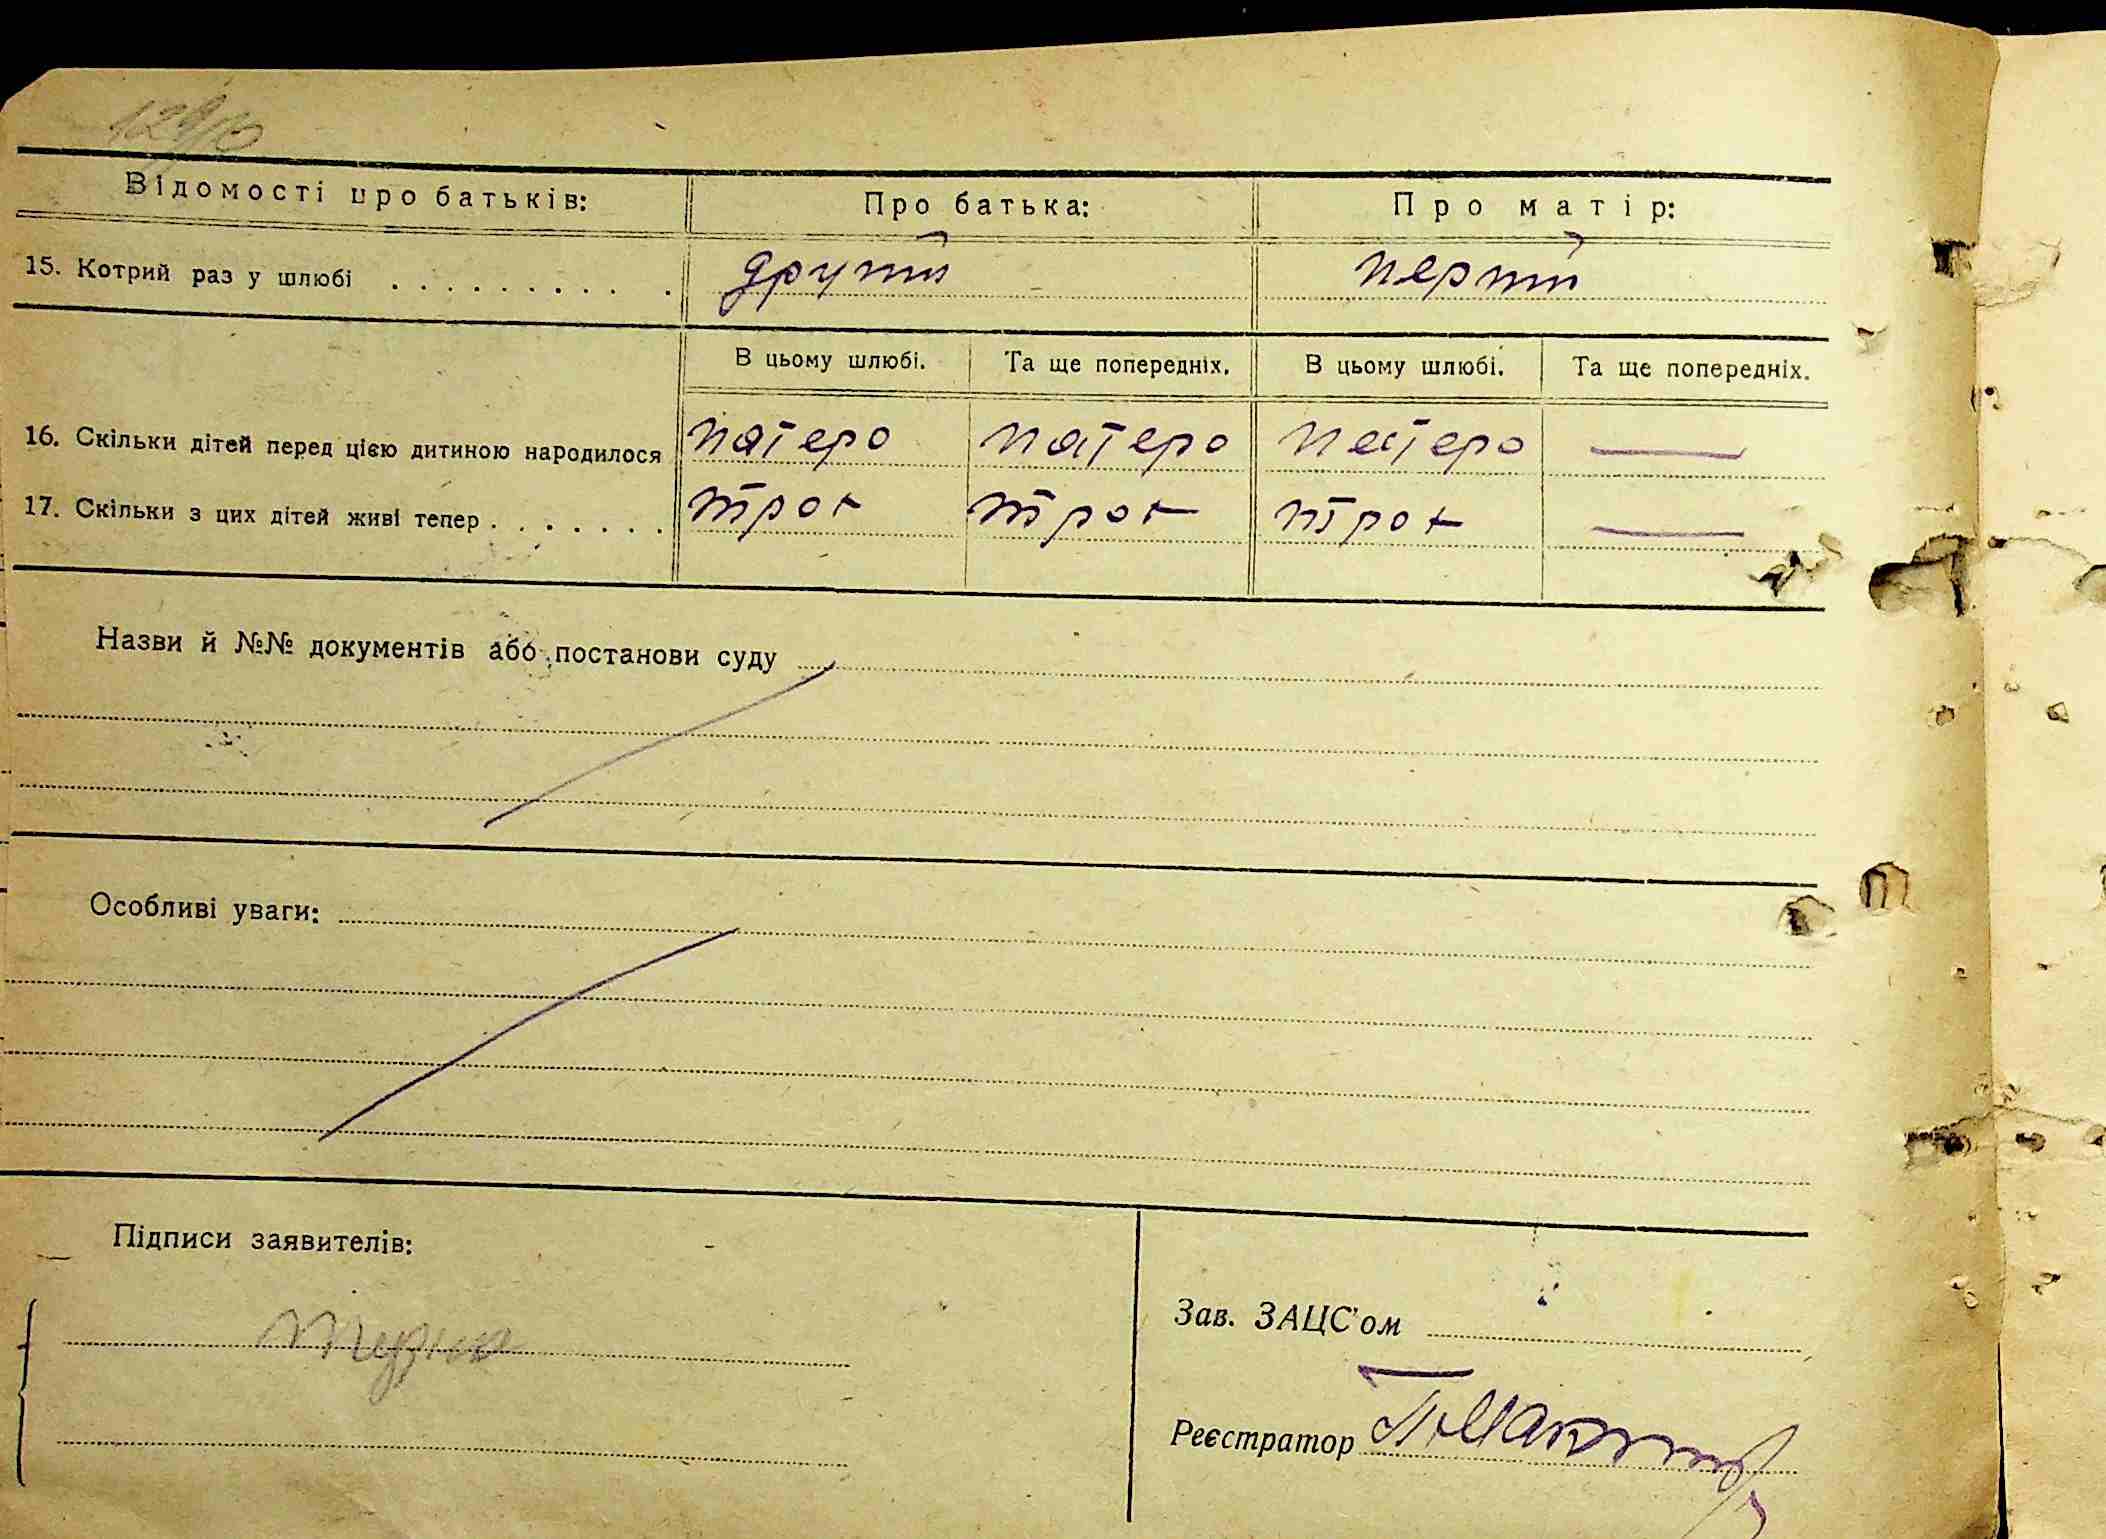 Відомості про батьків: Про батька: Про матір:
15. Котрий раз у шлюбі . . . . . . . . . . другий перший
В цьому шлюбі. Та ще попередніх. В цьому шлюбі. Та ще попередніх.
16. Скільки дітей перед цією дитиною народилося пятеро пятеро пятеро —
17. Скільки з цих дітей живі тепер . . . . . . . троє троє троє —
Назви й №№ документів або постанови суду
Особливі уваги:
Підписи заявителів:
Зав. ЗАЦС'ом
Реєстратор